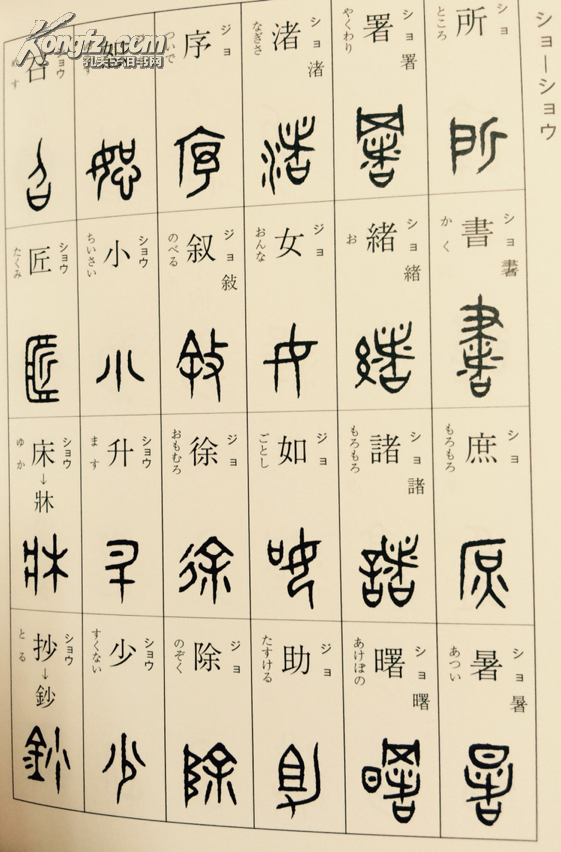 ショーショウ
所 ショ ところ
書 ショ 書 かく
庶 ショ もろもろ
暑 ショ 暑 あつい
署 ショ 署 やくわり
緒 ショ 緒 お
諸 ショ 諸 もろもろ
曙 ショ 曙 あけぼの
渚 ショ 渚 なぎさ
女 ジョ おんな
如 ジョ ごとし
助 ジョ たすける
序 ジョ ついで
叙 ジョ 敍 のべる
徐 ジョ おもむろ
除 ジョ のぞく
小 ショウ ちいさい
升 ショウ ます
少 ショウ すくない
召 ショウ めす
匠 ショウ たくみ
床→牀 ショウ ゆか
抄→鈔 ショウ とる
Kongfz.com
孔夫子旧书网